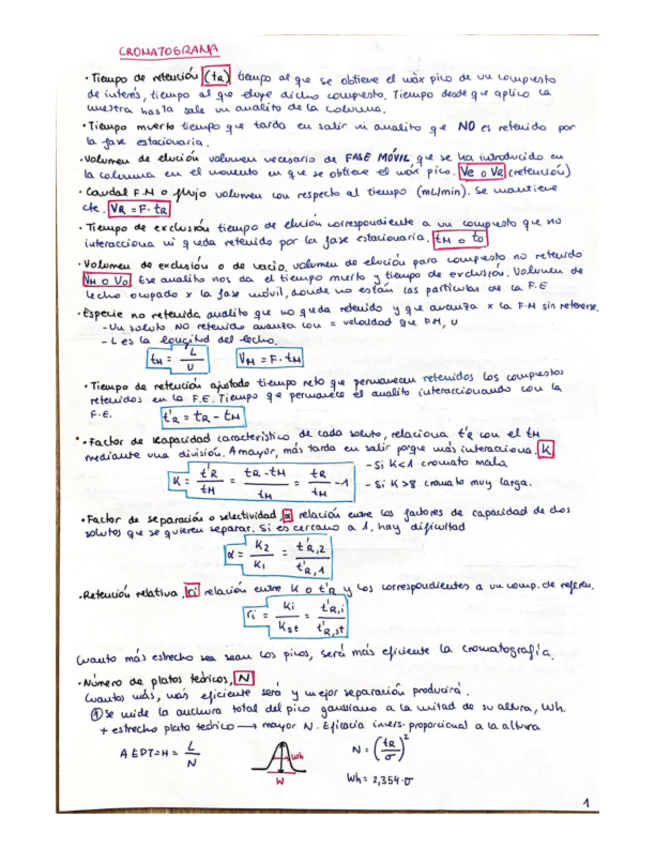 CROMATOGRAMA
· Tiempo de retención (tR) tiempo al que se obtiene el máx pico de un compuesto
de interés, tiempo al que eluye dicho compuesto. Tiempo desde que aplico la
muestra hasta sale un analito de la columna.
· Tiempo muerto tiempo que tarda en salir mi analito que NO es retenido por
la fase estacionaria.
· Volumen de elución volumen necesario de FASE MÓVIL que se ha introducido en
la columna en el momento en que se obtiene el máx pico. Ve o VR (retención)
· Caudal F.M o flujo volumen con respecto al tiempo (mL/min). Se mantiene
cte. VR = F · tR
· Tiempo de exclusión tiempo de elución correspondiente a un compuesto que no
interacciona ni queda retenido por la fase estacionaria. tM o t0
· Volumen de exclusión o de vacío. volumen de elución para compuesto no retenido
VM o V0 Ese analito nos da el tiempo muerto y tiempo de exclusión. Volumen de
lecho ocupado x la fase móvil, donde no están las partículas de la F.E
· Especie no retenida analito que no queda retenido y que avanza x la F.M sin retenerse.
- Un soluto NO retenido avanza con = velocidad que FM, U
- L es la longitud del lecho.
tM = L / U   VM = F · tM
· Tiempo de retención ajustado tiempo neto que permanecen retenidos los compuestos
retenidos en la F.E. Tiempo que permanece el analito interaccionando con la
F.E. t'R = tR - tM
· Factor de capacidad característico de cada soluto, relaciona t'R con el tM
mediante una división. A mayor, más tarda en salir porque más interacciona. K
K = t'R / tM = tR - tM / tM = tR / tM - 1
- Si K<1 cromato mala
- Si K>8 cromato muy larga.
· Factor de separación o selectividad, α relación entre los factores de capacidad de dos
solutos que se quieren separar. Si es cercano a 1, hay dificultad
α = K2 / K1 = t'R,2 / t'R,1
· Retención relativa, ri relación entre K o t'R y los correspondientes a un comp. de referen.
ri = Ki / Kst = t'R,i / t'R,st
Cuanto más estrecho sea sean los picos, será más eficiente la cromatografía.
· Número de platos teóricos, N
Cuantos más, más eficiente será y mejor separación producirá.
① Se mide la anchura total del pico gaussiano a la mitad de su altura, Wh.
+ estrecho plato teórico → mayor N. Eficacia invers. proporcional a la altura
AEPT=H = L / N   Wh   N = (tR / σ)²
W   Wh = 2,354·σ
1